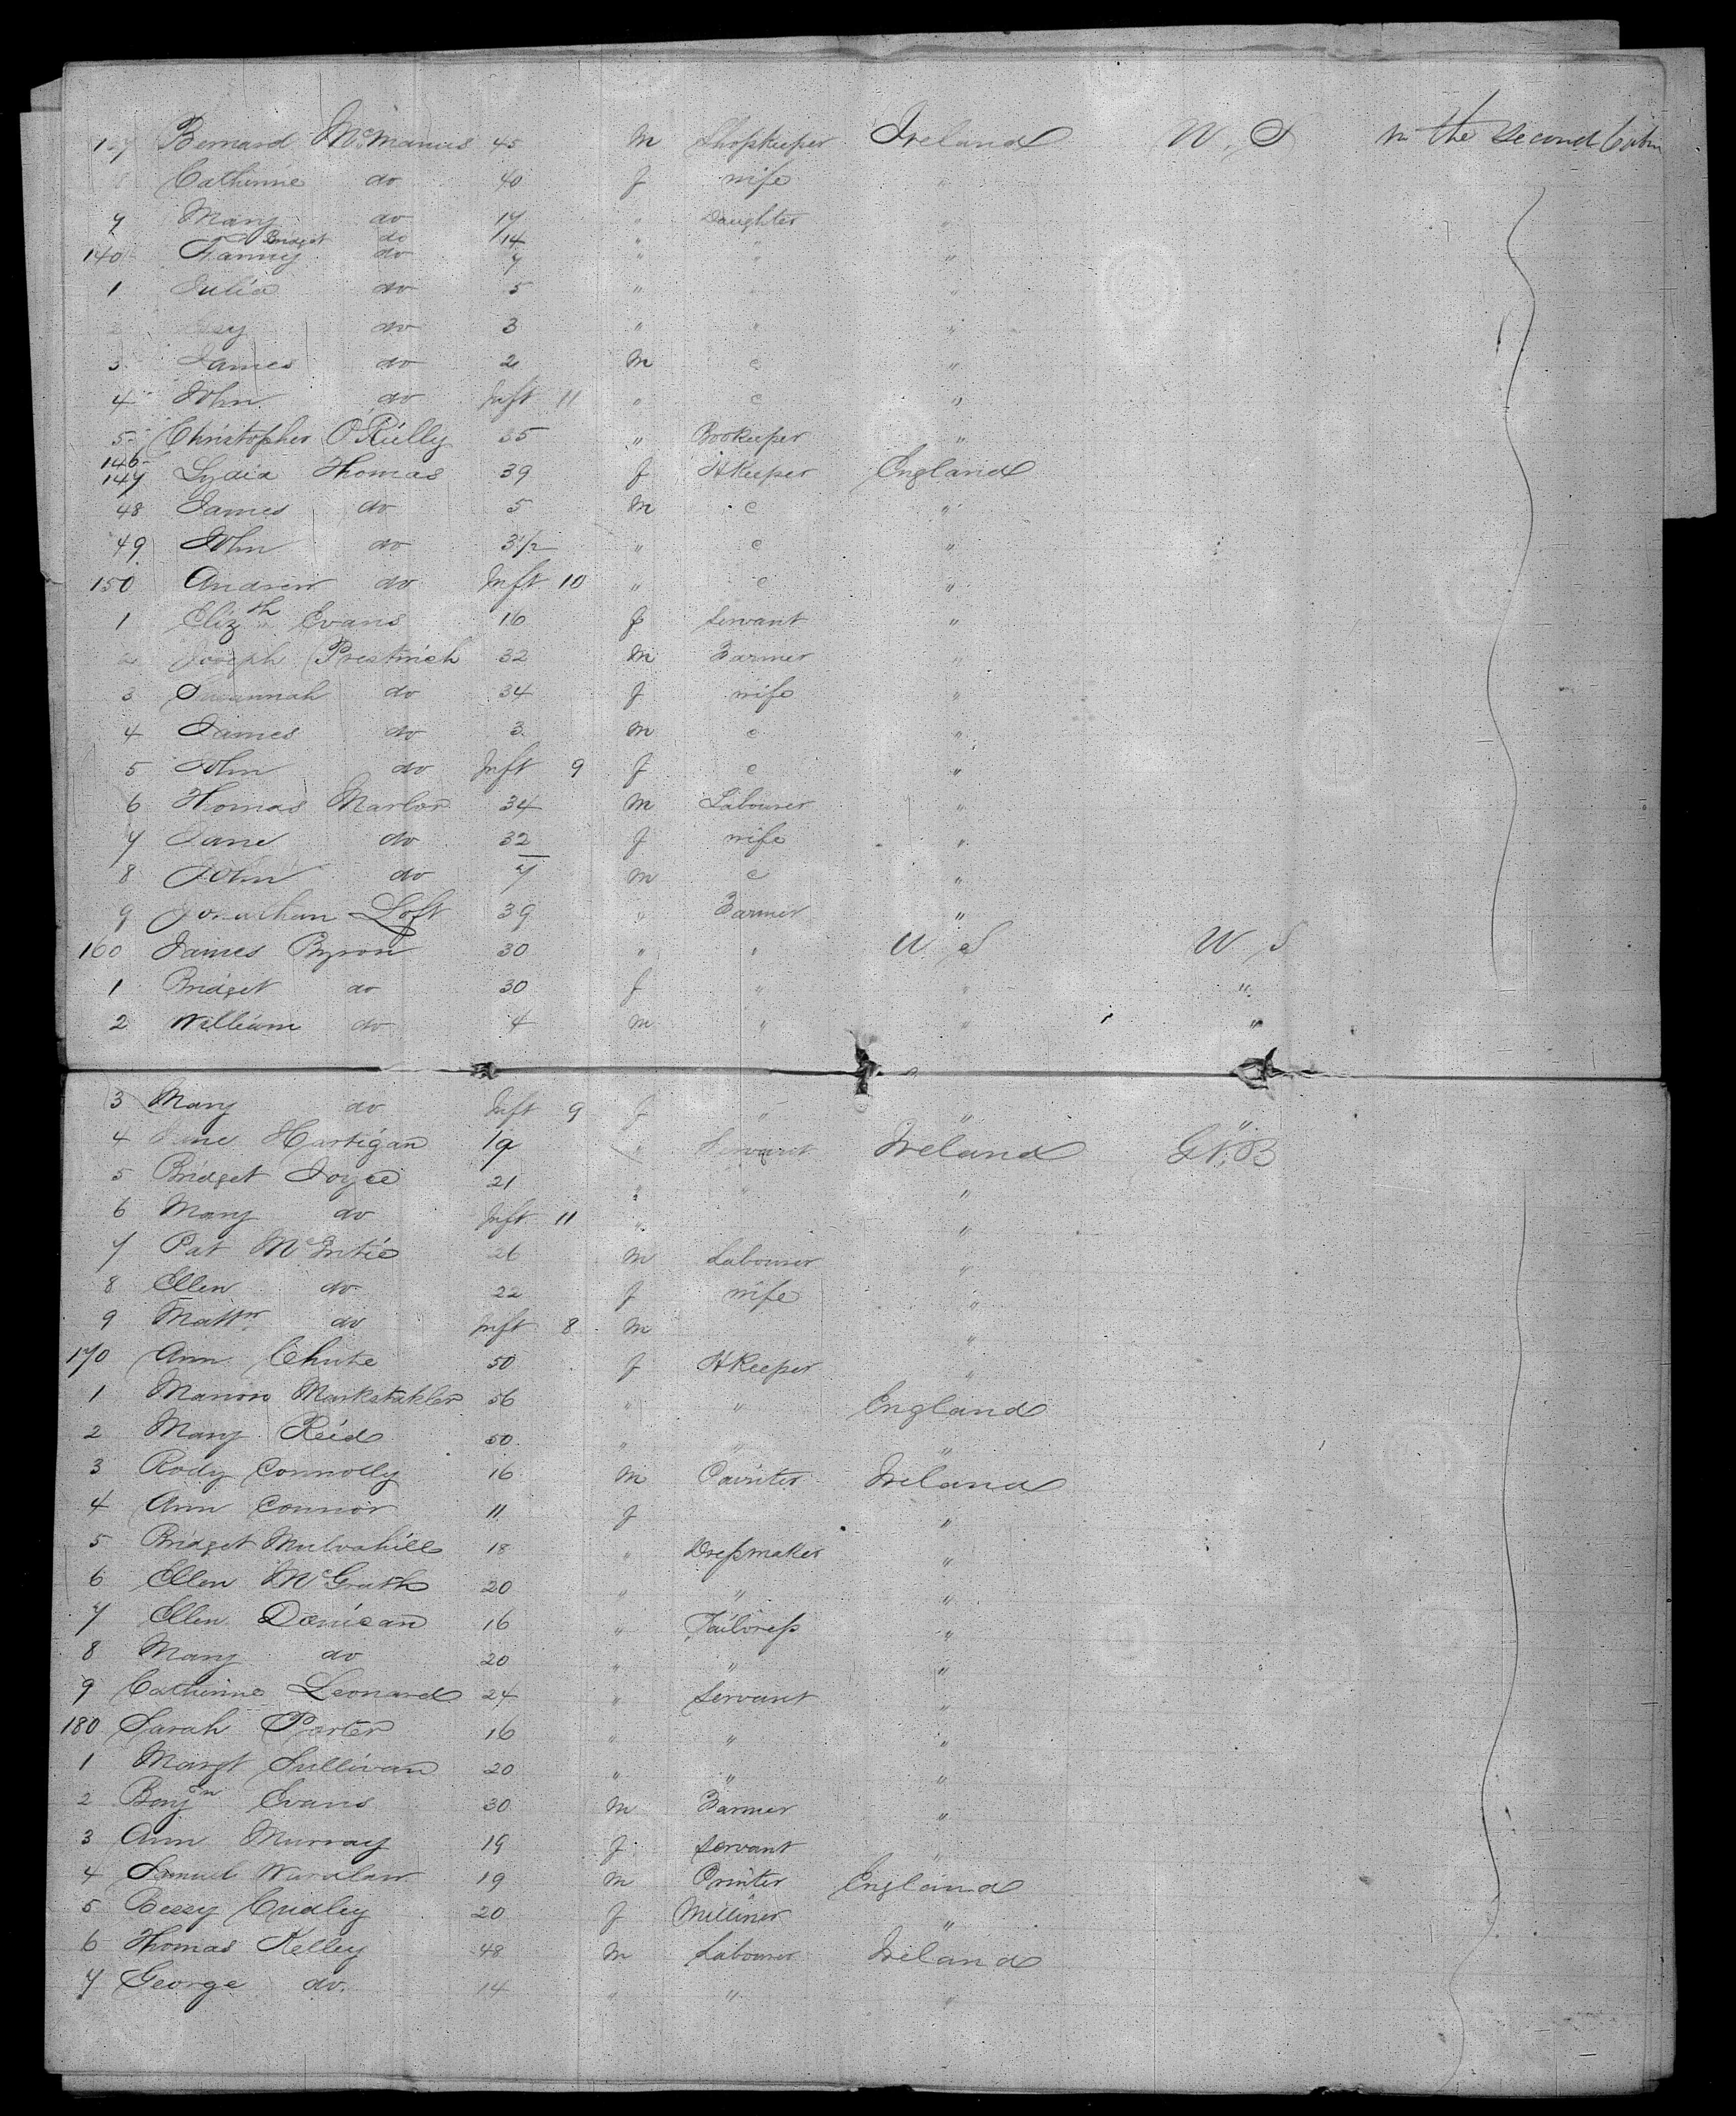 Bernard McManus 45 m Shopkeeper Ireland U. S in the second Cabin
Catherine do 40 f wife "
Mary do 17 " Daughter "
Bridget do 14 " "
140 Fanny do 7 " " "
1 Julia do 5 " "
do 3 " " "
3 James do 2 m c "
4 John do Inft 11 " c "
5 Christopher O'Rielly 35 " Bookeeper "
146-
147 Lydia Thomas 39 f HKeeper England
48 James do 5 m c "
49 John do 3 1/2 " c "
150 Andrew do Inft 10 " c "
1 Elizth Evans 16 f Servant "
2 Joseph Prestwich 32 m Farmer "
3 Susannah do 34 f wife "
4 James do 3 m c "
5 John do Inft 9 f c "
6 Thomas Marlor 34 m Labourer "
7 Jane do 32 f wife "
8 John do 7 m c "
9 Jonathan Loft 39 " Farmer "
160 James Byron 30 " " U S U S
1 Bridget do 30 f " " "
2 William do 4 m " " "
3 Mary do Inft 9 f " " "
4 Jane Hartigan 19 " Servant Ireland Gt. B
5 Bridget Joyce 21 " " "
6 Mary do Inft 11 " "
7 Pat McEntie 26 m Labourer "
8 Ellen do 22 f wife "
9 Mattw do Inft 8 m "
170 Ann Chute 50 f HKeeper "
1 Marion 56 " " England
2 Mary Reid 50 " " "
3 Rody Connolly 16 m Painter Ireland
4 Ann Connor 11 f "
5 Bridget Mulvahill 18 " Dressmaker "
6 Ellen McGrath 20 " " "
7 Ellen Denican 16 " Tailoress "
8 Mary do 20 " " "
9 Catherine Leonard 24 " Servant "
180 Sarah Porter 16 " " "
1 Margt Sullivan 20 " " "
2 Benjn Evans 30 m Farmer "
3 Ann Murray 19 f Servant "
4 Samuel Wardlaw 19 m Printer England
5 Bessy Cudley 20 f Milliner "
6 Thomas Kelley 48 m Labourer Ireland
7 George do. 14 " " "